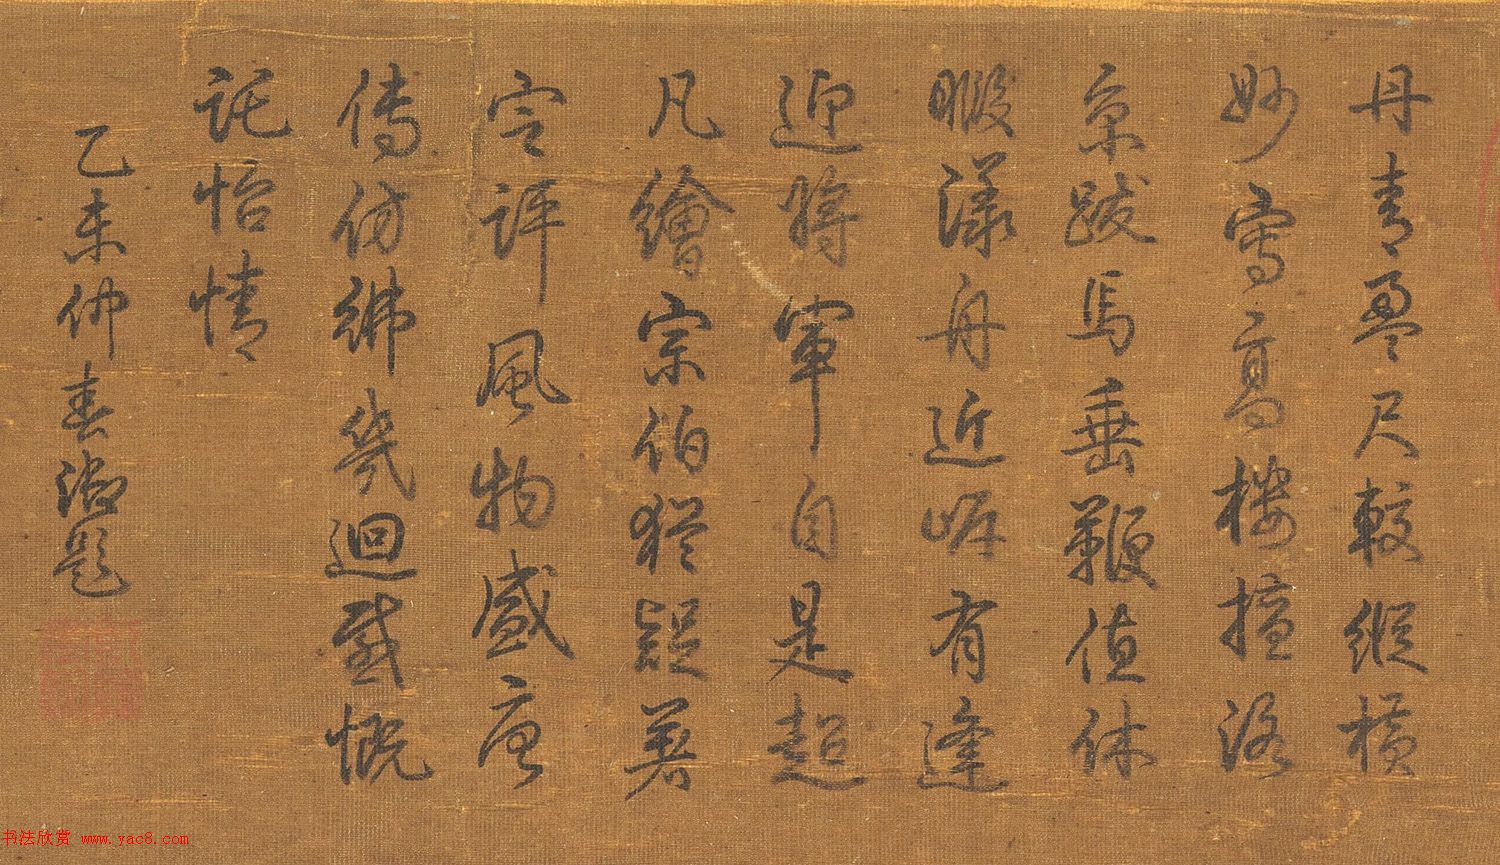 丹青盈尺較縱橫
妙寫高樓擅洛
京跋馬垂鞭值休
暇漾舟近岸有逢
迎將軍自是超
凡繪宗伯猶疑著
空評風物盛唐
傳仿彿幾迴感慨
託怡情
乙未仲春御題
书法欣赏 www.yac8.com